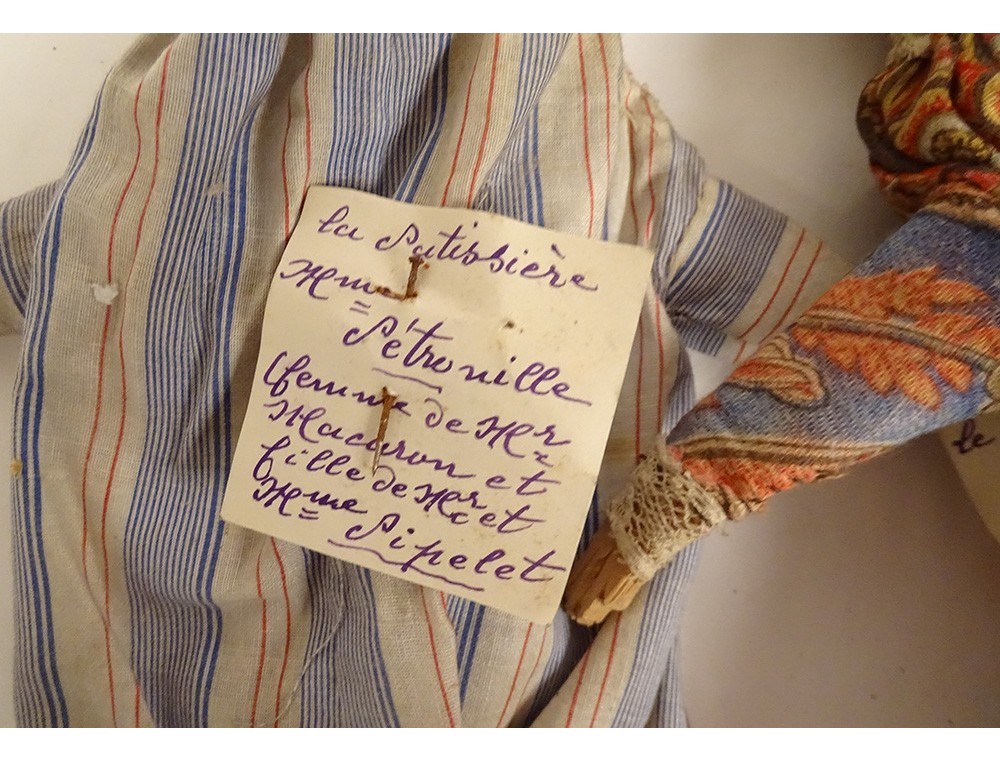 la Patissière
Mme
Pétronille
(femme de Mr
Macaron et
fille de Mr et
Mme Pipelet
le